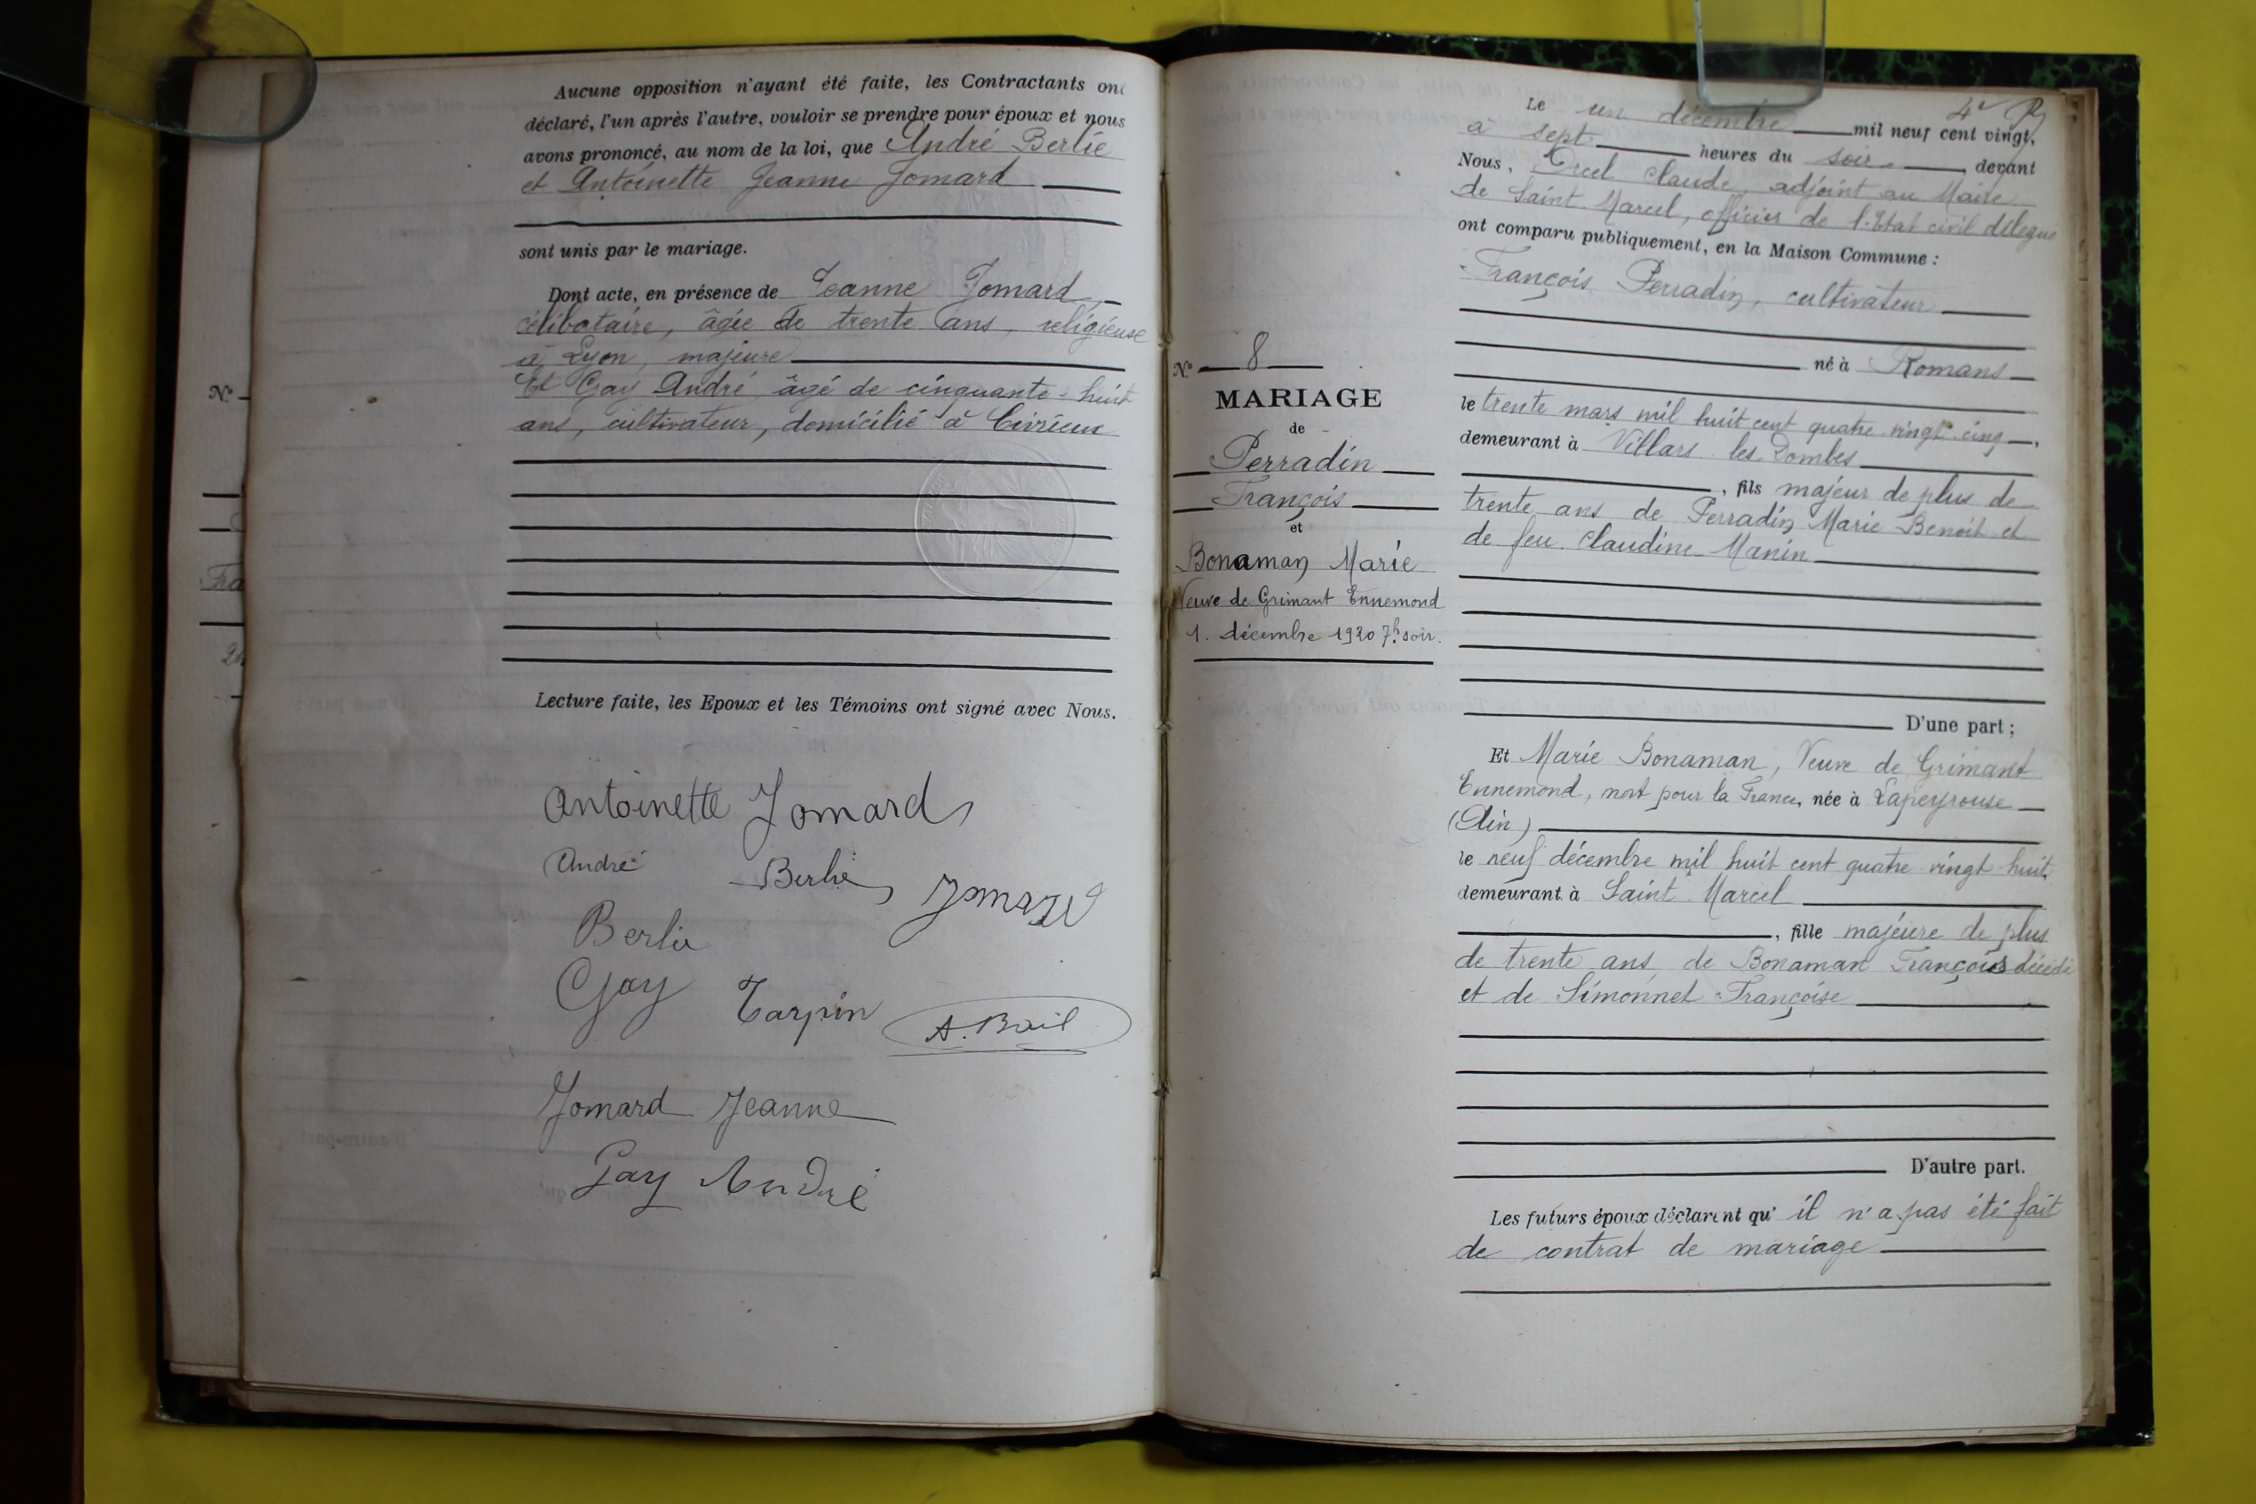 Aucune opposition n'ayant été faite, les Contractants ont
déclaré, l'un après l'autre, vouloir se prendre pour époux et nous
avons prononcé, au nom de la loi, que André Berlie
et Antoinette Jeanne Jomard
sont unis par le mariage.
Dont acte, en présence de Jeanne Jomard,
célibataire, âgée de trente ans, religieuse
à Lyon, majeure
Et Gay André âgé de cinquante-huit
ans, cultivateur, domicilié à Civrieux
Lecture faite, les Epoux et les Témoins ont signé avec Nous.
Antoinette Jomard
André Berlie Jomard
Berlie
Gay Tarpin A. Bail
Jomard Jeanne
Gay André
N°
Fra
N° 8
MARIAGE
de
Perradin
François
et
Bonaman Marie
Veuve de Grimant Ennemond
1. décembre 1920 7h soir.
4e
Le un décembre mil neuf cent vingt,
à sept heures du soir, devant
Nous, Orcel Claude, adjoint au Maire
de Saint Marcel, officier de l'Etat civil délégué
ont comparu publiquement, en la Maison Commune :
François Perradin, cultivateur
né à Romans
le trente mars mil huit cent quatre vingt cinq,
demeurant à Villars les Dombes
, fils majeur de plus de
trente ans de Perradin Marie Benoit et
de feu Claudine Manin
D'une part ;
Et Marie Bonaman, Veuve de Grimant
Ennemond, mort pour la France, née à Lapeyrouse
(Ain)
le neuf décembre mil huit cent quatre vingt huit,
demeurant à Saint Marcel
, fille majeure de plus
de trente ans de Bonaman François décédé
et de Simonnet Françoise
D'autre part.
Les futurs époux déclarent qu'il n'a pas été fait
de contrat de mariage